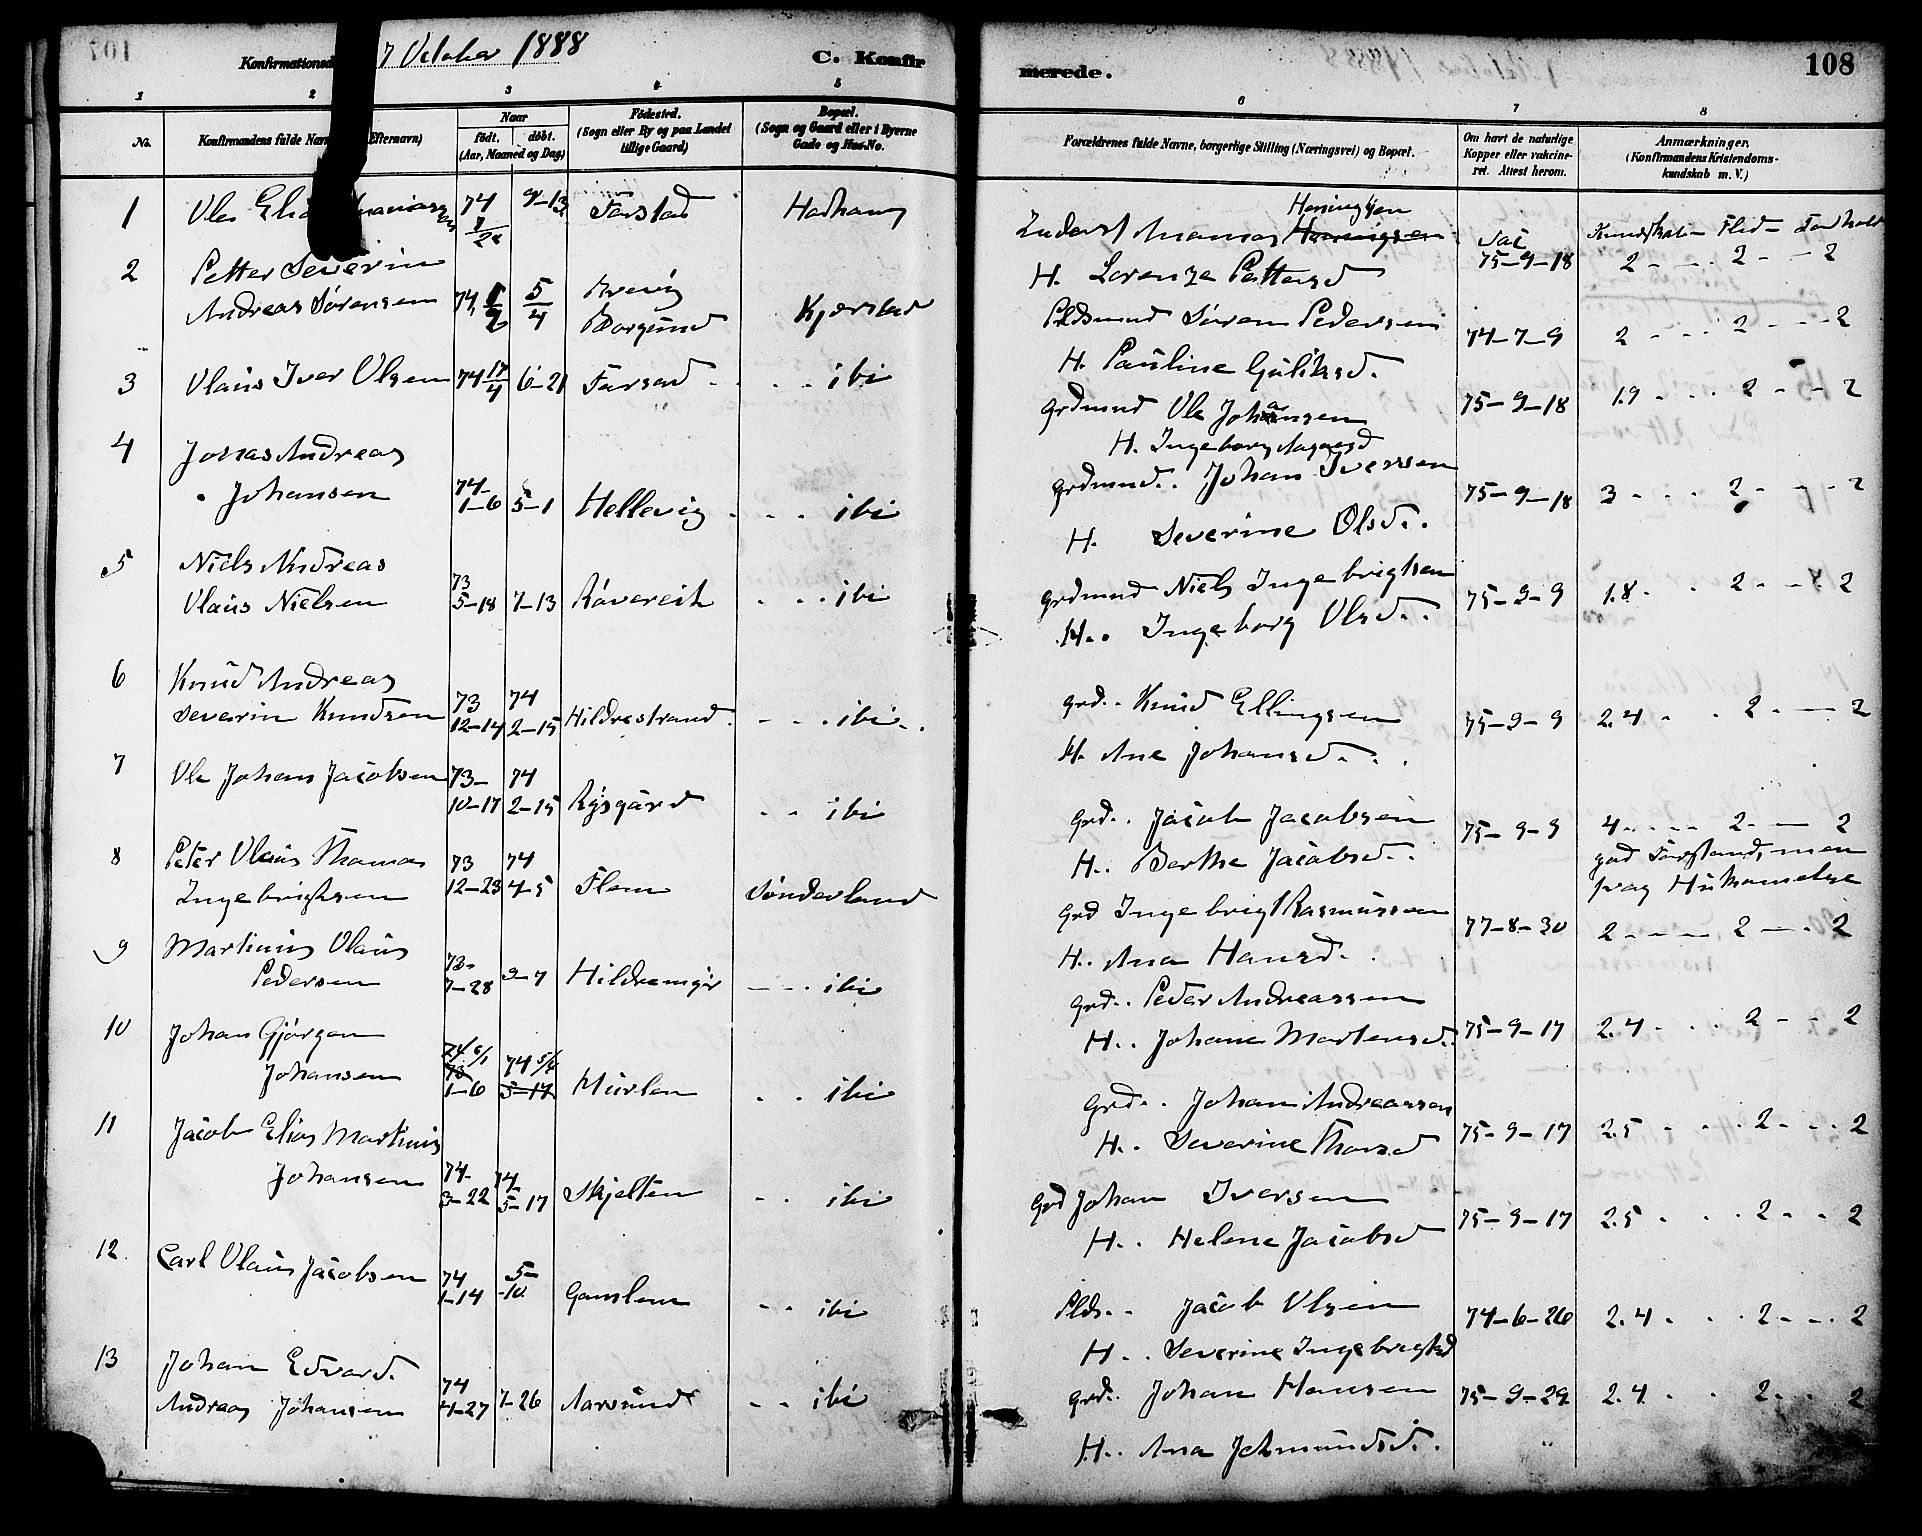 Konfirmationsd 7 October 1888 C. Konfir
merede. 108
1 2 3 4 5 6 7 8
No.
Konfirmandens fulde Nav Efternavn)
Naar
født. døbt.
(Aar, Maaned og Dag)
Fødested.
(Sogn eller By og paa Landet
tillige Gaard)
Bopæl.
(Sogn og Gaard eller i Byerne
Gade og Hus-No.
Forældrenes fulde Navne, borgerlige Stilling (Næringsvei) og Bopæl.
Om havt de naturlige
Kopper eller vakcine-
ret. Attest herom.
Anmærkninger.
(Konfirmandens Kristendoms-
kundskab m. V.)
1 Ole 74 9-13 Farstad
Kundskab - Flid - Forhold
H. Lorenze Pettersd 75-9-18 2 - - - 2 - - 2
2 Petter Severin
Andreas Sørensen 74 5/4 Brevig
Borgund Kjerstad
Pldsmand Søren Pedersen 74-7-9 2 - - - 2 - - - 2
H. Pauline Guliksd.
3 Olaus Iver Olsen 74 17/4 6-21 Farstad - - - ibi
grdmand Ole Johansen 75-9-18 1.9 - - - 2 - - 2
H. Ingeborg Aagaesd
4 Jonas Andreas
Johansen 74- 1-6 5-1 Hellevig - - - ibi
grdmand. Johan Iversen 75-9-18 3 - - - 2 - - - 2
H. Severine Olsd.
5 Niels Andreas
Olaus Nielsen 73 5-18 7-13 Røvereit - - - ibi
grdmand Niels Ingebrigtsen 75-9-9 1.8 - - 2 - - 2
H. Ingeborg Olsd.
6 Knud Andreas
Severin Knudsen 73 12-14 74 2-15 Hildrestrand. - - - ibi
grd. Knud Ellingsen 75-9-9 2.4 - - 2 - - 2
H. Ane Johansd.
7 Ole Johan Jacobsen 73- 10-17 74 2-15 Rysgård - - ibi
grd. Jacob Jacobsen 75-9-9 4 - - - 2 - - 2
H. Berthe Jacobsd.
god Forstand, men
svag Hukomelse
8 Peter Olaus Thomas
Ingebrigtsen 73 12-23 74 4-5 Flem Sønderland
Grd Ingebrigt Rasmussen 77-8-30 2 - - - 2 - - 2
H. Ana Hansd.
9 Martinus Olaus
Pedersen 73- 7-28 9-7 - - - ibi
grd. Peder Andreassen
H. Johane Martensd. 75-9-17 2.4 - - - 2 - - 2
10 Johan Gjørgen
Johansen 74 6/1 73 1-6 74 5-17 Hurlen - - ibi
Grd. Johan Andreassen
H. Severine Thorsd 75-9-17 2.5 - - - 2 - - 2
11 Jacob Elias Martinus
Johansen 74- 3-22 74- 5-17 Skjelten - - ibi
Grd Johan Iversen 75-9-17 2.5 - - - 2 - - 2
H. Helene Jacobsd
12 Carl Olaus Jacobsen 74 1-14 5- -10 Gamlem - - ibi
Plds. Jacob Olsen 74-6-26 2.4 - - - 2 - - 2
H. Severine Ingebrigtsd
13 Johan Edvard.
Andreas Johansen 74 4-27 7-26 Aarsund - - ibi
grd. Johan Hansen 75-9-29 2.4 - - 2 - - 2
H. Ana Johmundsd.